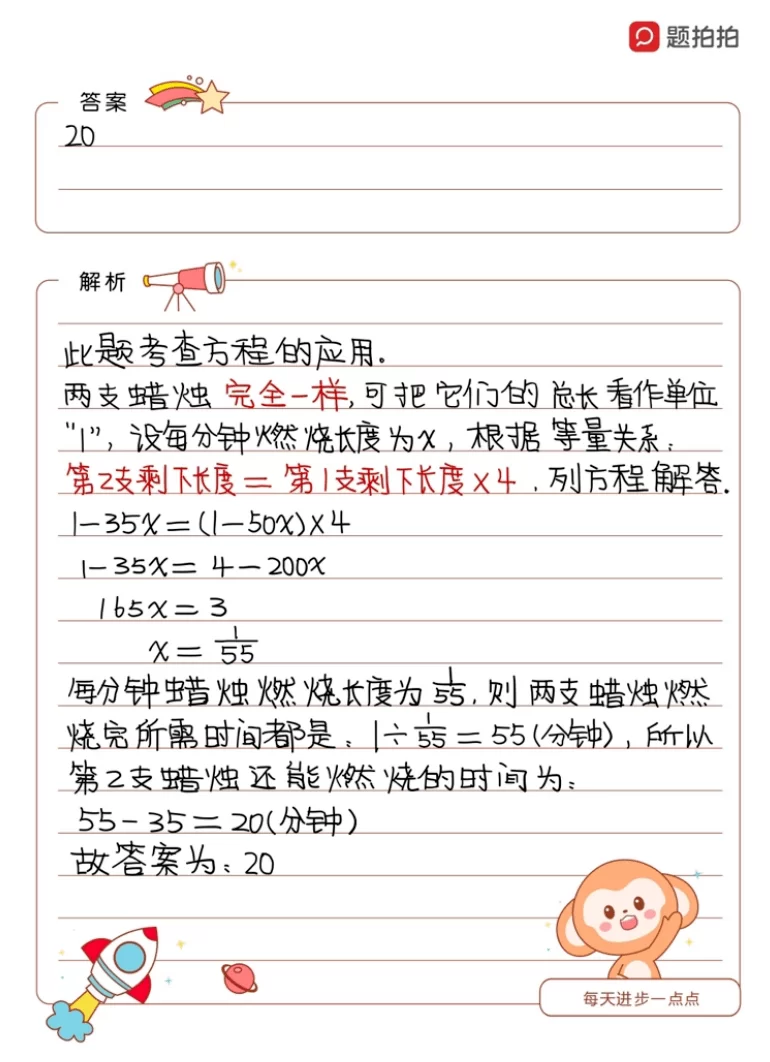 题拍拍
答案
20
解析
此题考查方程的应用.
两支蜡烛完全一样,可把它们的总长看作单位
"1",设每分钟燃烧长度为x,根据等量关系:
第2支剩下长度=第1支剩下长度×4.列方程解答.
1-35x=(1-50x)×4
1-35x=4-200x
165x=3
x=1/55
每分钟蜡烛燃烧长度为1/55,则两支蜡烛燃
烧完所需时间都是:1÷1/55=55(分钟),所以
第2支蜡烛还能燃烧的时间为:
55-35=20(分钟)
故答案为:20
每天进步一点点